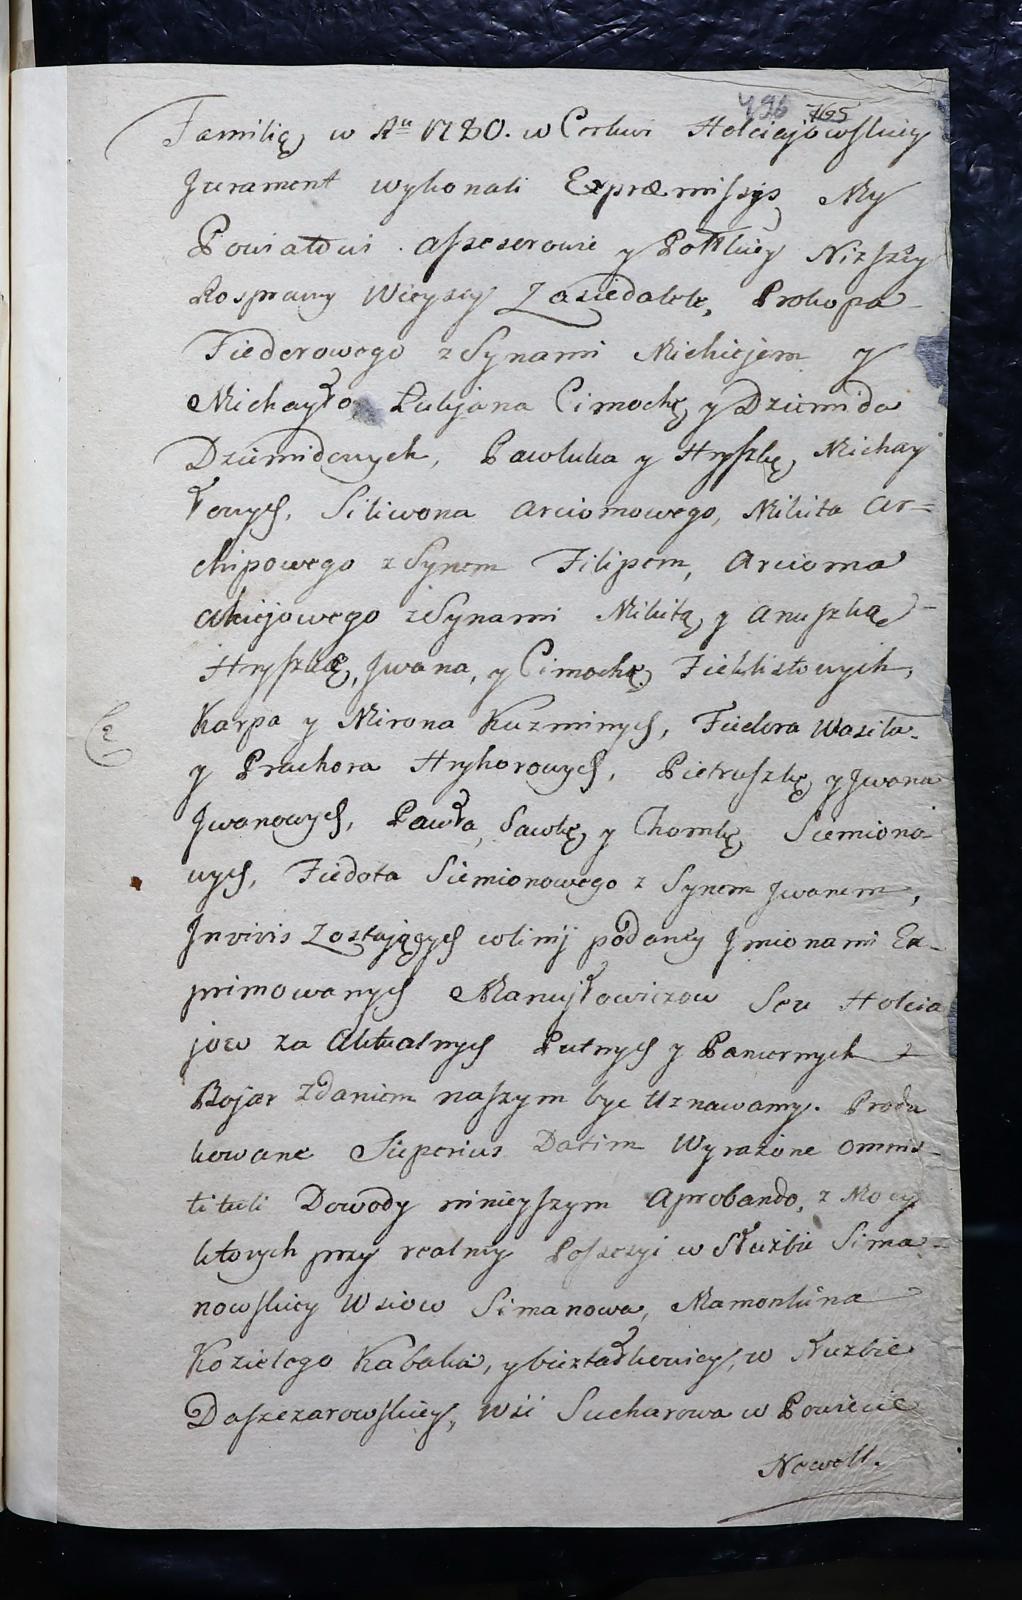 496 765
Familię w Aū 1780. w Cerkwi Hołciejowskiey
Jurament wykonali Expræmissys, My
Powiatowi assesorowie y Połłkiey Niższéy
Rosprawy Wieyscy Zasiedatele, Prokopa
Fiederowego z Synami Michiejem y
Michayło Łukjana Cimochę y Dziemida
Dziemidowych, Pawluka y Hryszkę, Michay
łowych, Siliwona Arciomowego, Mikita Ar=
chipowego z Synem Filipem, Arcioma
Akiejowego z Synami Mikitą y Anuszką
Hryszkę, Jwana, y Cimochę Fieklistowych,
Karpa y Mirona Kuzminych, Fiedora Wasila
y Prachora Hryhorowych, Pietruszkę y Jwana
Jwanowych, Pawła, Sawkę y Chomkę Siemiono
wych, Fiedota Siemionowego z Synem Jwanem,
Jnvivis Zostających w linij podaney Jmionami Ex-
primowanych Manuyłowiczow Seu Hołcia
jow za Aktualnych Putnych y Pancernych
Bojar zdaniem naszym byc Uznawamy. Produ
kowane Superius Datim Wyrażone omnis
tituli Dowody ninieyszym Aprobando, z Mocy
ktorych przy realney Possesyi w Służbie Sima-
nowskiey Wsiow Simanowa, Mamonkina
Kozielego Kabaka, y Służbie
Daszczarowskiey, Wsi Sucharowa w Powiecie
Newell.